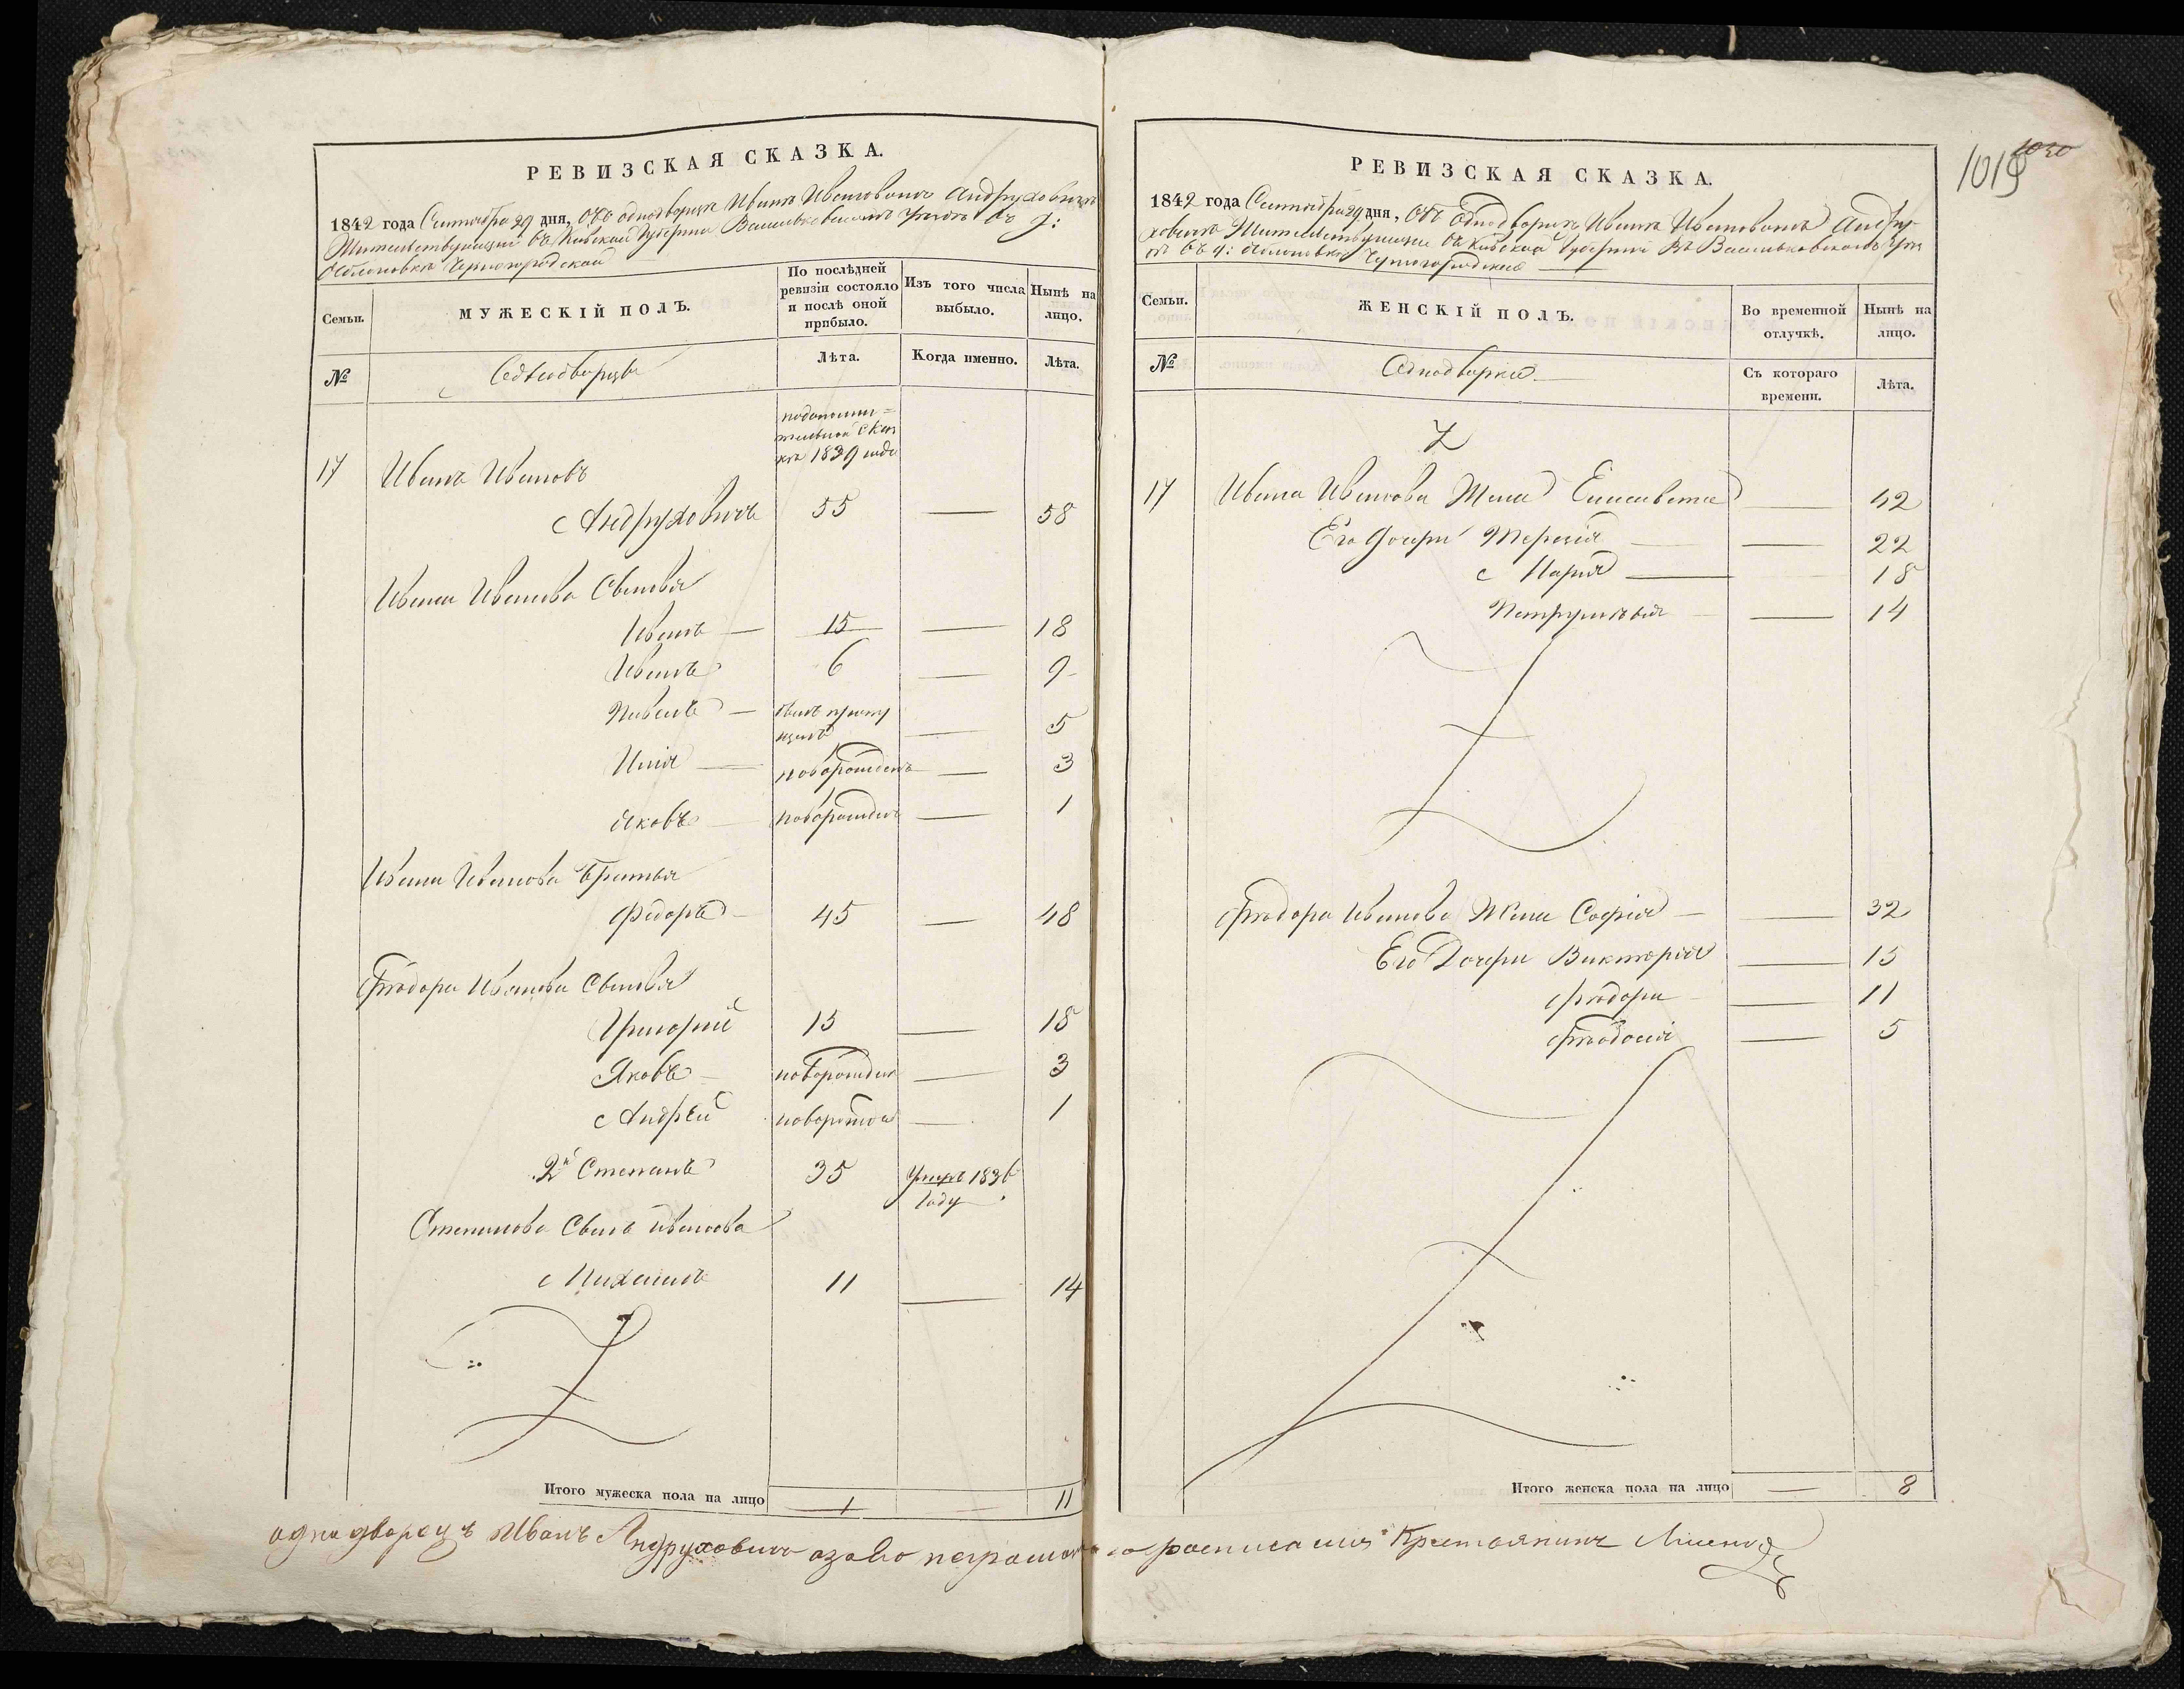 РЕВИЗСКАЯ СКАЗКА.
1842 года Сентября 29 дня, Объ однодворце Иване Ивановиче Андруховиче
Жительствующий въ Киевской Губернии Васильковскомъ Уезде въ д:
Яблоновке Черногородской
Семьи.
МУЖЕСКІЙ ПОЛЪ.
По послѣдней ревизіи состояло и послѣ оной прибыло.
Изъ того числа выбыло.
Нынѣ на лицо.
№
Однодворцы
Лѣта.
Когда именно.
Лѣта.
подополни=
тельной сказ
ке 1839 года
17 Иванъ Ивановъ
Андруховичъ 55 — 58
Ивана Иванова Сыновья
Иванъ — 15 — 18
Иванъ 6 — 9
Павелъ — былъ пропу
щенъ — 5
Илія — новорожденъ — 3
Яковъ — новорожденъ — 1
Ивана Иванова Братья
Фёдоръ — 45 — 48
Ѳеодора Иванова Сыновья
Григорий 15 — 18
Яковъ — новорожден — 3
Андрей новорожден — 1
2й Степанъ 35 Умеръ 1836
году
Степанова Сынъ Иванова
Михаилъ 11 — 14
Итого мужеска пола на лицо 1 — 11
РЕВИЗСКАЯ СКАЗКА.
1842 года Сентября 29 дня, Объ Однодворце Иване Ивановиче Андру-
ховиче Жительствующие въ Киевской Губернии въ Васильковскомъ Уез
де въ д: Яблоновке Черногородской —
Семьи.
ЖЕНСКІЙ ПОЛЪ.
Во временной отлучкѣ.
Нынѣ на лицо.
№
Однодворки —
Съ котораго времени.
Лѣта.
17 Ивана Иванова Жена Елисавета — 42
Его дочери Терезія — — 22
Марія — 18
Петрунелія — 14
Ѳеодора Иванова Жена Софія — — 32
Его Дочери Викторія — 15
Ѳеодора — 11
Ѳеодосія — 5
Итого женска пола на лицо — 8
1019
1030
однодворецъ Иванъ Андруховичъ азаво неграмотнаго росписался Крестьянинъ